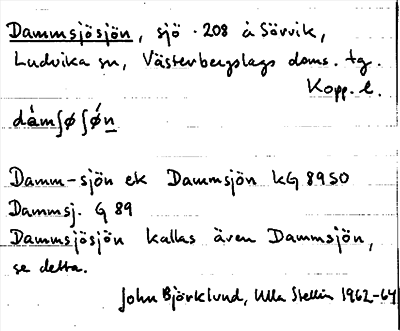 Dammsjösjön, sjö · 208 å Sörvik,
Ludvika sn, Västerbergslags doms. tg.
Kopp. l.
dámʃøʃǿn
Damm-sjön ek Dammsjön kG 89 SO
Dammsj. G 89
Dammsjösjön kallas även Dammsjön,
se detta.
John Björklund, Ulla Stellin 1962-64